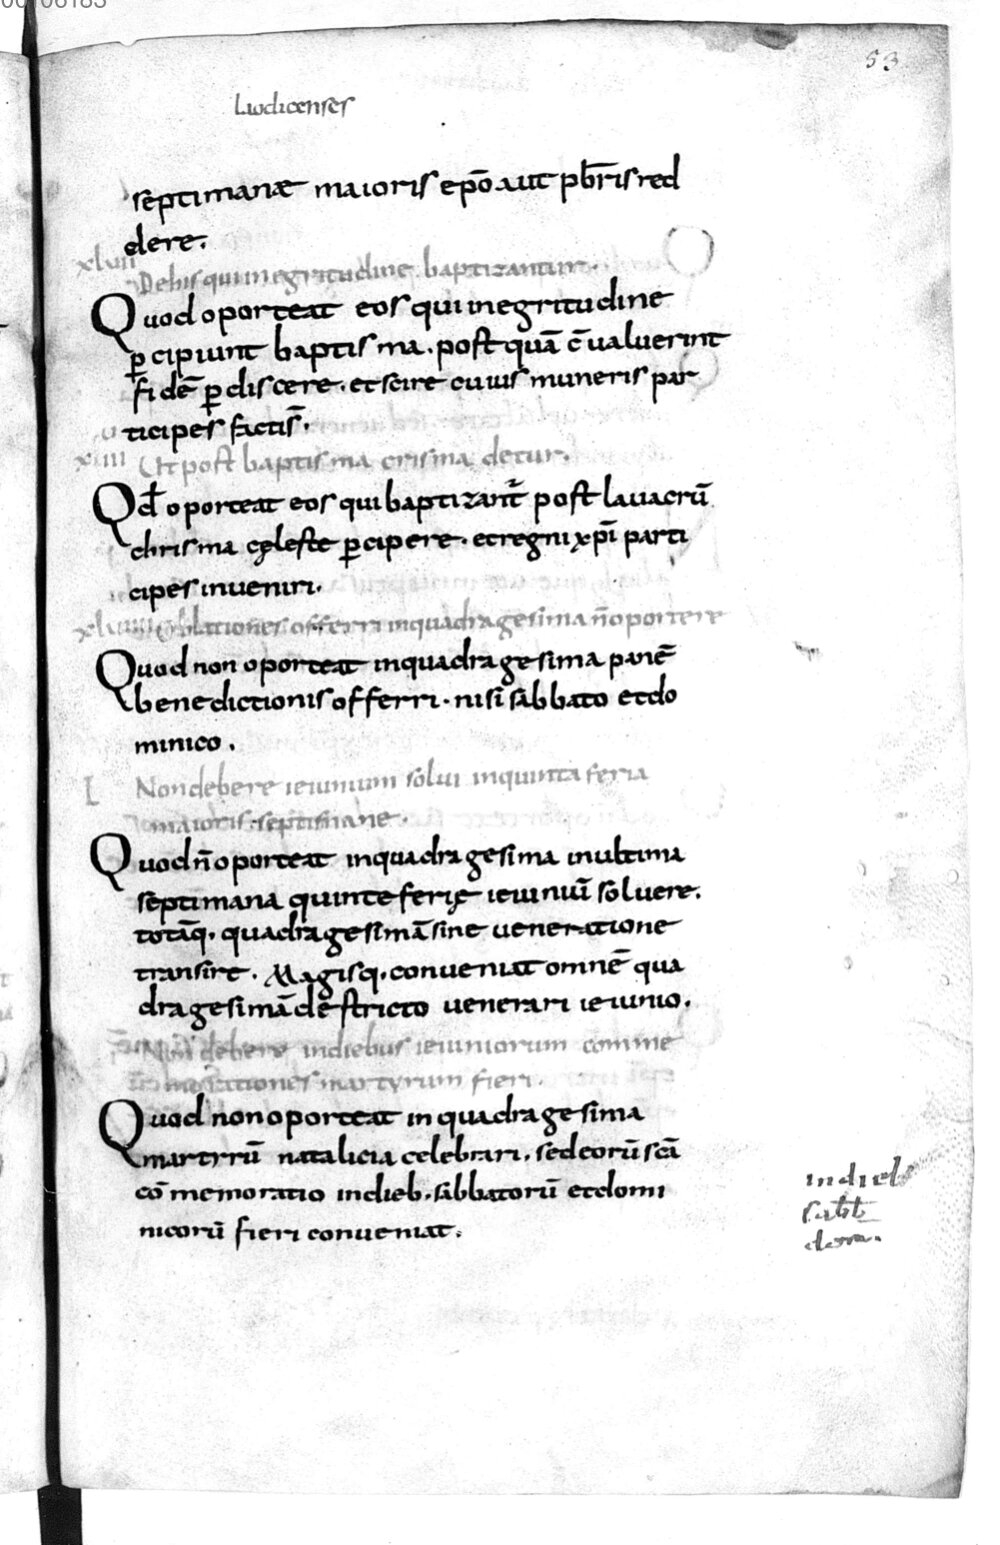 53
Laodicenses
septimanæ maioris ep̄o aut pb̄ris red
dere.
xlvii De his qui in egritudine baptizantur.
Quod oporteat eos qui in egritudine
ꝑcipiunt baptisma. post quā c̄ualuerint
fidē ꝑdiscere. et scire cuius muneris par
ticipes facti s̄.
Ut post baptisma crisma detur.
Qd̄ oporteat eos qui baptizant̄ post lauacrū
chrisma cęleste ꝑcipere. et regni xp̄i parti
cipes inueniri.
xlviiii Oblationes offerri in quadragesima n̄ oportere
Quod non oporteat in quadragesima panē
benedictionis offerri. nisi sabbato et do
minico.
L Non debere ieiunium solui in quinta feria
maioris septimane.
Quod n̄ oporteat in quadragesima in ultima
septimana quinte ferię ieiuniū soluere.
totāq. quadragesimā sine ueneratione
transire. Magisq. conueniat omnē qua
dragesimā destricto uenerari ieiunio.
Non debere in diebus ieiuniorum cōme
morationes martyrum fieri.
Quod non oporteat in quadragesima
martyrū natalicia celebrari. sed eorū scā
cōmemoratio in dieb. sabbatorū et domi
nicorū fieri conueniat.
in dieb
sabb
dom.